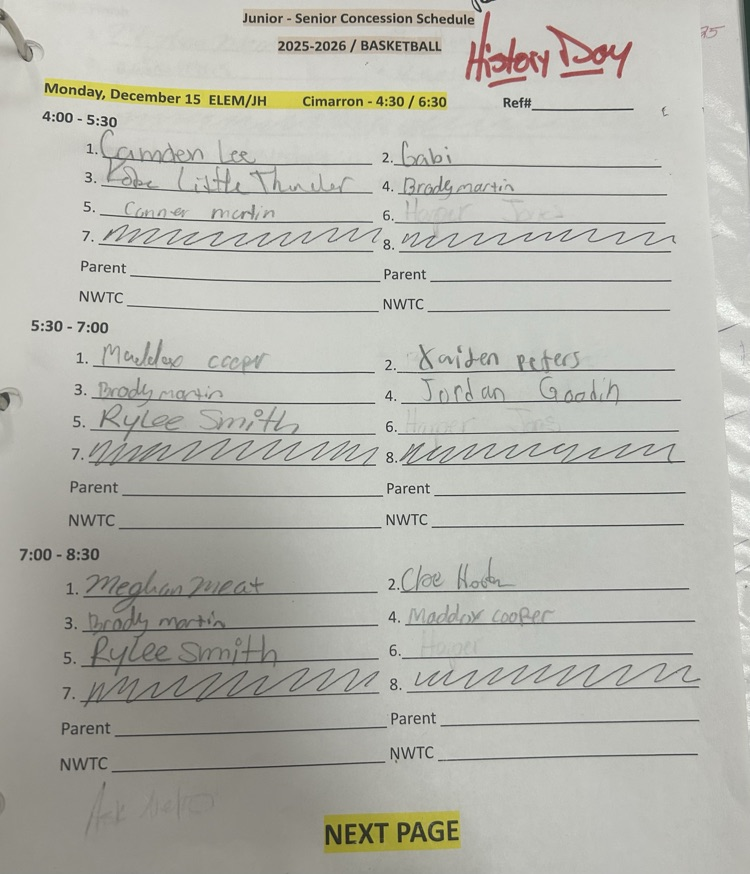 Junior - Senior Concession Schedule
2025-2026 / BASKETBALL
History Day
Monday, December 15 ELEM/JH Cimarron - 4:30 / 6:30 Ref#
4:00 - 5:30
1. Camden Lee 2. Gabi
3. Kobe Little Thunder 4. Brady martin
5. Conner martin 6. Harper Jones
7. 8.
Parent Parent
NWTC NWTC
5:30 - 7:00
1. Maddox cooper 2. Kaiden peters
3. Brody martin 4. Jordan Goodin
5. Rylee Smith 6. Harper
7. 8.
Parent Parent
NWTC NWTC
7:00 - 8:30
1. Meghan meat 2. Cloe
3. Brody martin 4. Maddox cooper
5. Rylee Smith 6. Harper
7. 8.
Parent Parent
NWTC NWTC
Ask
NEXT PAGE